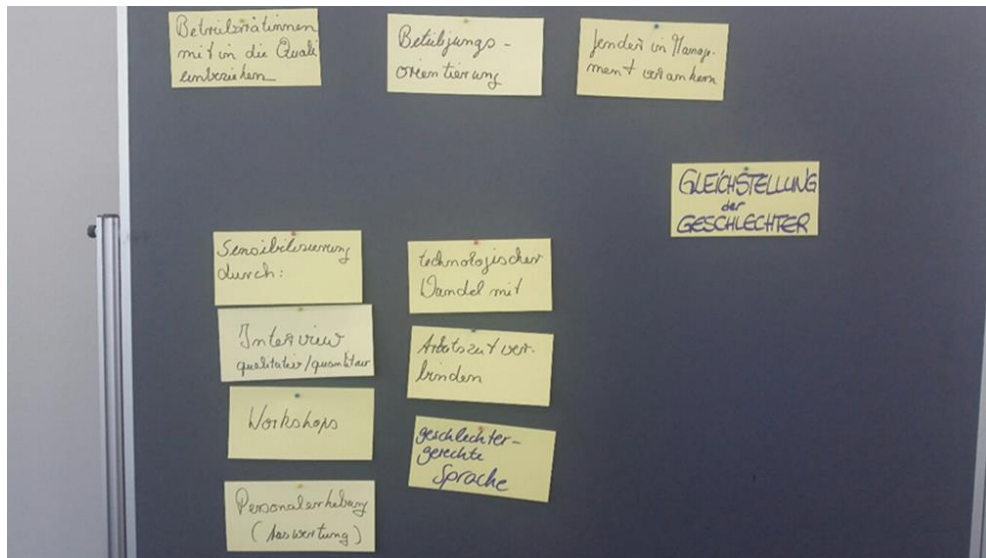 Betriebsrätinnen
mit in die Quali
einbeziehen
Beteiligungs-
orientierung
Gender in Manage-
ment verankern
GLEICHSTELLUNG
der
GESCHLECHTER
Sensibilisierung
durch:
Interview
qualitativ/quantitativ
Workshops
Personalerhebung
(Auswertung)
technologischer
Wandel mit
Arbeitszeit ver-
binden
geschlechter-
gerechte
Sprache